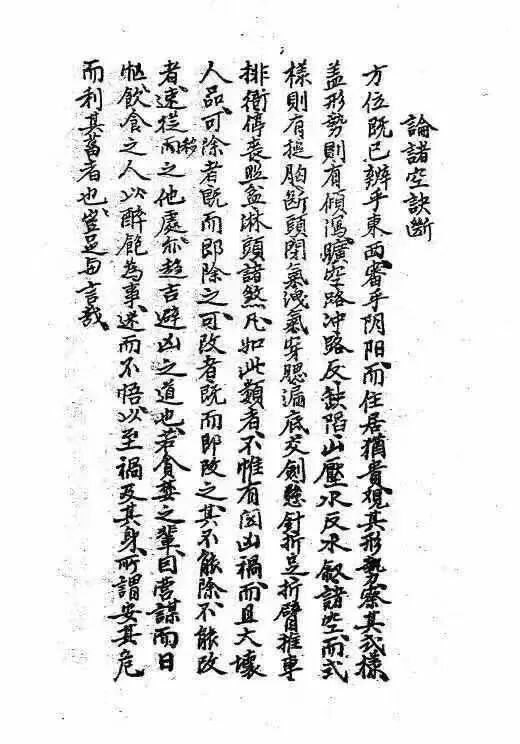 論諸空訣斷
方位既已辨乎東西審乎阴阳而住居猶貴观其形势察其式樣
盖形势則有傾瀉曠空路冲路反缺陷山壓水反水劍諸空而式
樣則有搥胸斷頭閉氣洩氣穿腮漏底交劍懸針折足折臂推車
排衙停丧照盆淋頭諸煞凡如此類者不惟有凶禍而且大壞
人品可除者既而即除之可改者既而即改之其不能除不能改
者速從而移之他處亦趋吉避凶之道也若貪婪之輩目营謀而日
飲食之人以醉飽為事迷而不悟以至禍及其身所謂安其危
而利其菑者也豈足与言哉